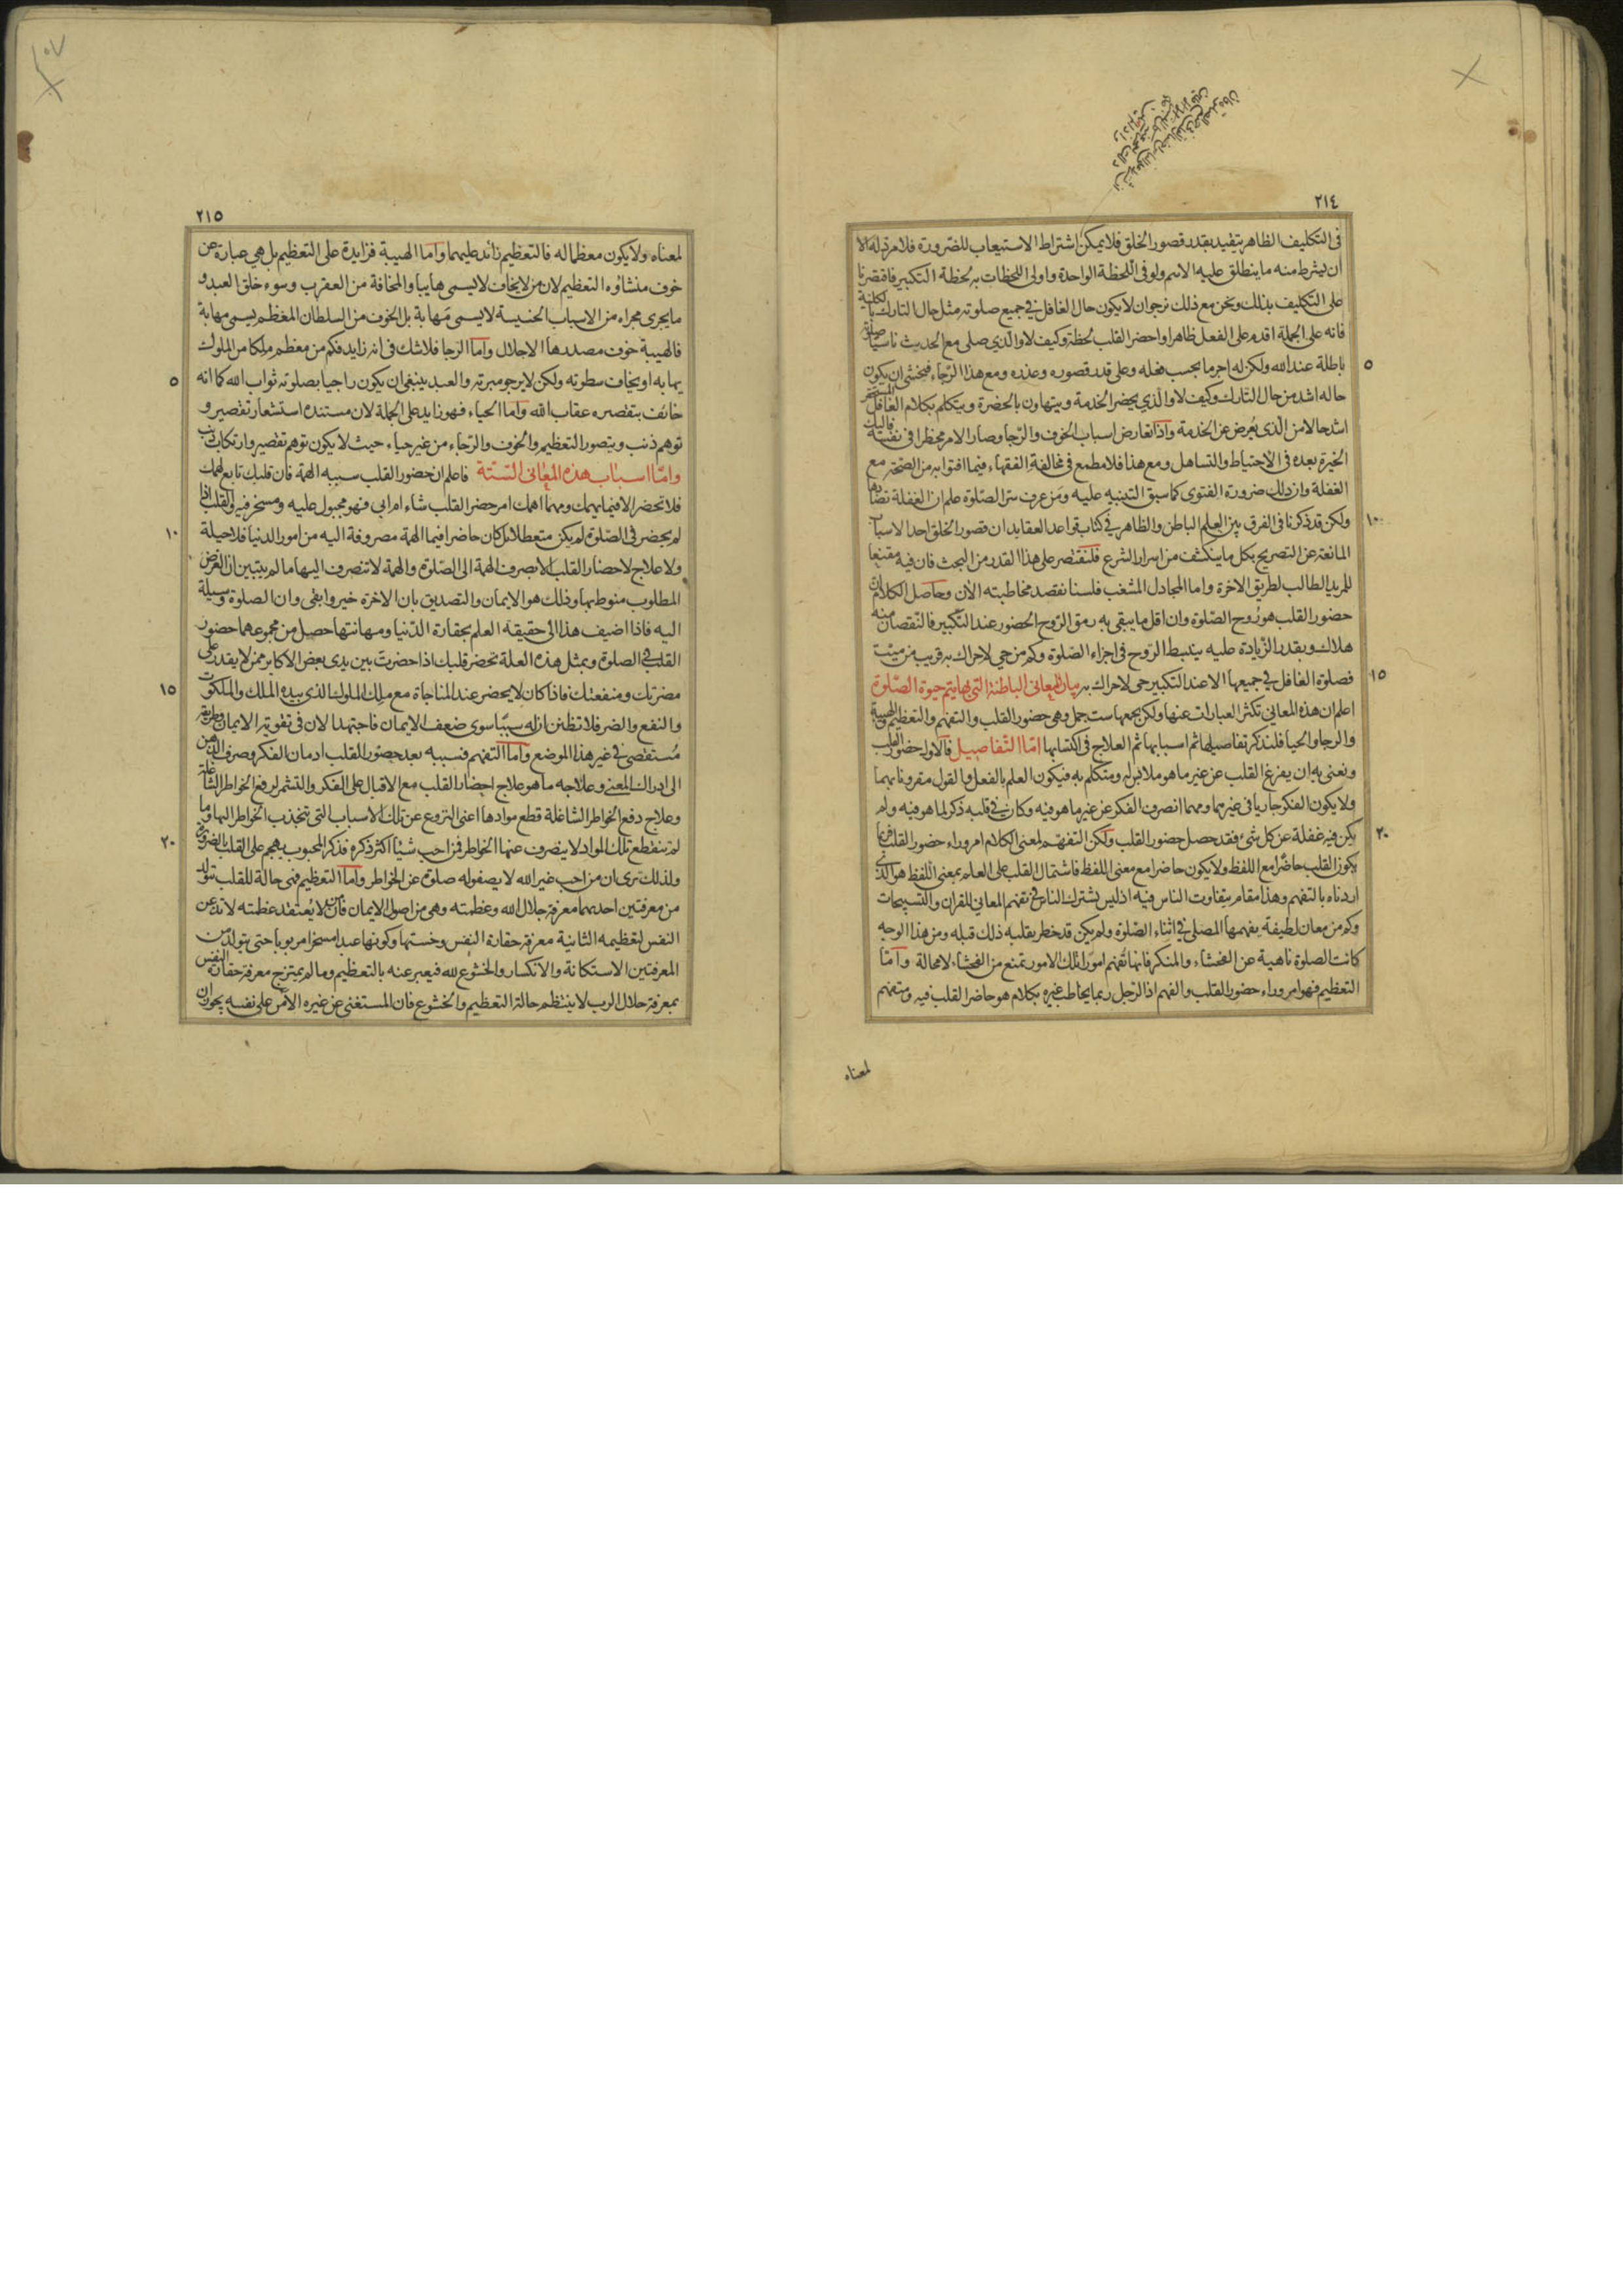 ٢١٤
فى التكليف الظاهر يتقيد بقدر قصور الخلق فلا يمكن اشتراط الاستيعاب للضرورة فلا مرد له الا
ان يشرط منه ما ينطلق عليه الاسم ولو فى اللحظة الواحدة واولى اللحظات به لحظة التكبير فاقتصرنا
على التكليف بذلك ونحن مع ذلك نرجوان لا يكون حال الغافل في جميع صلوته مثل حال التارك بالكلية
فانه على الجملة اقدم على الفعل ظاهرا واحضر القلب لحظة وكيف لا والذي صلى مع الحدث ناسيا صلوته
باطلة عند الله ولكن له اجر ما بحسب فعله وعلى قدر قصوره وعذره ومع هذا الرجاء فيخشى ان يكون
حاله اشد من حال التارك وكيف لا والذي يحضر الخدمة ويتهاون بالحضرة ويتكلم بكلام الغافل المستحقر
اشد حالا من الذى يعرض عن الخدمة واذا تعارض اسباب الخوف والرجا وصار الامر مخطرا فى نفسه فاليك
الخيرة بعده فى الاحتياط والتساهل ومع هذا فلا مطمع فى مخالفة الفقهاء فيما افتوا به من الصحة مع
الغفلة وان ذلك ضرورة الفتوى كما سبق التنبيه عليه ومن عرف سر الصلوة علم ان الغفلة تضادها
ولكن قد ذكرنا فى الفرق بين العلم الباطن والظاهر في كتاب قواعد العقايد ان قصور الخلق احد الاسباب
المانعة عن التصريح بكل ما ينكشف من اسرار الشرع فلنقتصر على هذا القدر من البحث فان فيه مقنعا
للمريد الطالب لطريق الاخرة واما المجادل المشغب فلسنا نقصد مخاطبته الان وحاصل الكلام ان
حضور القلب هو روح الصلوة وان اقل ما يبقى به رمق الروح الحضور عند التكبير فالنقصان منه
هلاك وبقدر الزيادة عليه ينبسط الروح فى اجزاء الصلوة وكم من حي لا حراك به قريب من ميت
فصلوة الغافل في جميعها الا عند التكبير حى لا حراك به بيان المعانى الباطنة التى بها يتم حيوة الصلوة
اعلم ان هذه المعاني تكثر العبارات عنها ولكن يجمعها ست جمل وهى حضور القلب والتفهم والتعظيم والهيبة
والرجا والحيا فلنذكر تفاصيلها ثم اسبابها ثم العلاج فى اكتسابها اما التفاصيل فالاول حضور القلب
ونعنى به ان يفرغ القلب عن غير ما هو ملابس له ومتكلم به فيكون العلم بالفعل والقول مقرونا بهما
ولا يكون الفكر جاريا فى غيرهما ومهما انصرف الفكر عن غير ما هو فيه وكان في قلبه ذكر لما هو فيه ولم
يكن فيه غفلة عن كل شئ فقد حصل حضور القلب ولكن التفهم لمعنى الكلام امر وراء حضور القلب فربما
يكون القلب حاضرا مع اللفظ ولا يكون حاضرا مع معنى اللفظ فاشتمال القلب على العلم بمعنى اللفظ هو الذى
اردناه بالتفهم وهذا مقام يتفاوت الناس فيه اذ ليس يشترك الناس في تفهم المعاني للقران والتسبيحات
وكم من معان لطيفة يفهمها المصلى في اثناء الصلوة ولم يكن قد خطر بقلبه ذلك قبله ومن هذا الوجه
كانت الصلوة ناهية عن الفحشاء والمنكر فانها تفهم امورا تلك الامور تمنع من الفحشاء لا محالة واما
التعظيم فهو امر وراء حضور القلب والفهم اذ الرجل ربما يخاطب غيره بكلام هو حاضر القلب فيه ومتفهم
لمعناه
٢١٥
لمعناه ولا يكون معظما له فالتعظيم زائد عليهما واما الهيبة فزايدة على التعظيم بل هي عبارة عن
خوف منشاؤه التعظيم لان من لا يخاف لا يسمى هايبا والمخافة من العقرب وسوء خلق العبد و
ما يجرى مجراه من الاسباب الخسيسة لا يسمى مهابة بل الخوف من السلطان المعظم يسمى مهابة
فالهيبة خوف مصدرها الاجلال واما الرجا فلا شك فى انه زايد فكم من معظم ملكا من الملوك
يهابه او يخاف سطوته ولكن لا يرجو مبرته والعبد ينبغى ان يكون راجيا بصلوته ثواب الله كما انه
خائف بتقصيره عقاب الله واما الحياء فهو زايد على الجملة لان مستنده استشعار تقصير و
توهم ذنب ويتصور التعظيم والخوف والرجاء من غير حياء حيث لا يكون توهم تقصير وارتكاب ذنب
واما اسباب هذه المعانى الستة فاعلم ان حضور القلب سببه الهمة فان قلبك تابع لهمك
فلا تحضر الا فيما يهمك ومهما اهمك امر حضر القلب شاء ام ابى فهو مجبول عليه ومسخر فيه والقلب اذا
لم يحضر فى الصلوة لم يكن متعطلا بل كان حاضرا فيما الهمة مصروفة اليه من امور الدنيا فلا حيلة
ولا علاج لاحضار القلب الا بصرف الهمة الى الصلوة والهمة لا تنصرف اليها ما لم يتبين ان الغرض
المطلوب منوط بها وذلك هو الايمان والتصديق بان الاخرة خير وابقى وان الصلوة وسيلة
اليه فاذا اضيف هذا الى حقيقة العلم بحقارة الدنيا ومهانتها حصل من مجموعهما حضور
القلب في الصلوة وبمثل هذه العلة تحضر قلبك اذا حضرت بين يدى بعض الاكابر ممن لا يقدر على
مضرتك ومنفعتك فاذا كان لا يحضر عند المناجاة مع ملك الملوك الذى بيده الملك والملكوت
والنفع والضر فلا تظنن ان له سببا سوى ضعف الايمان فاجتهد الان فى تقوية الايمان وطريقه
مستقصى في غير هذا الموضع واما التفهم فسببه بعد حضور القلب ادمان الفكر وصرف الذهن
الى ادراك المعنى وعلاجه ما هو علاج احضار القلب مع الاقبال على الفكر والتشمر لدفع الخواطر الشاغلة
وعلاج دفع الخواطر الشاغلة قطع موادها اعنى النزوع عن تلك الاسباب التى تنجذب الخواطر اليها وما
لم ينقطع تلك المواد لا ينصرف عنها الخواطر فمن احب شيئا اكثر ذكره فذكر المحبوب يهجم على القلب بالضرورة
ولذلك ترى ان من احب غير الله لا يصفو له صلوة عن الخواطر واما التعظيم فهى حالة للقلب تتولد
من معرفتين احديهما معرفة جلال الله وعظمته وهى من اصول الايمان فان من لا يعتقد عظمته لا تذعن
النفس لتعظيمه الثانية معرفة حقارة النفس وخستها وكونها عبدا مسخرا مربوبا حتى يتولد من
المعرفتين الاستكانة والانكسار والخشوع لله فيعبر عنه بالتعظيم وما لم يمتزج معرفة حقارة النفس
بمعرفة جلال الرب لا ينتظم حالة التعظيم والخشوع فان المستغنى عن غيره الامن على نفسه يجوز ان